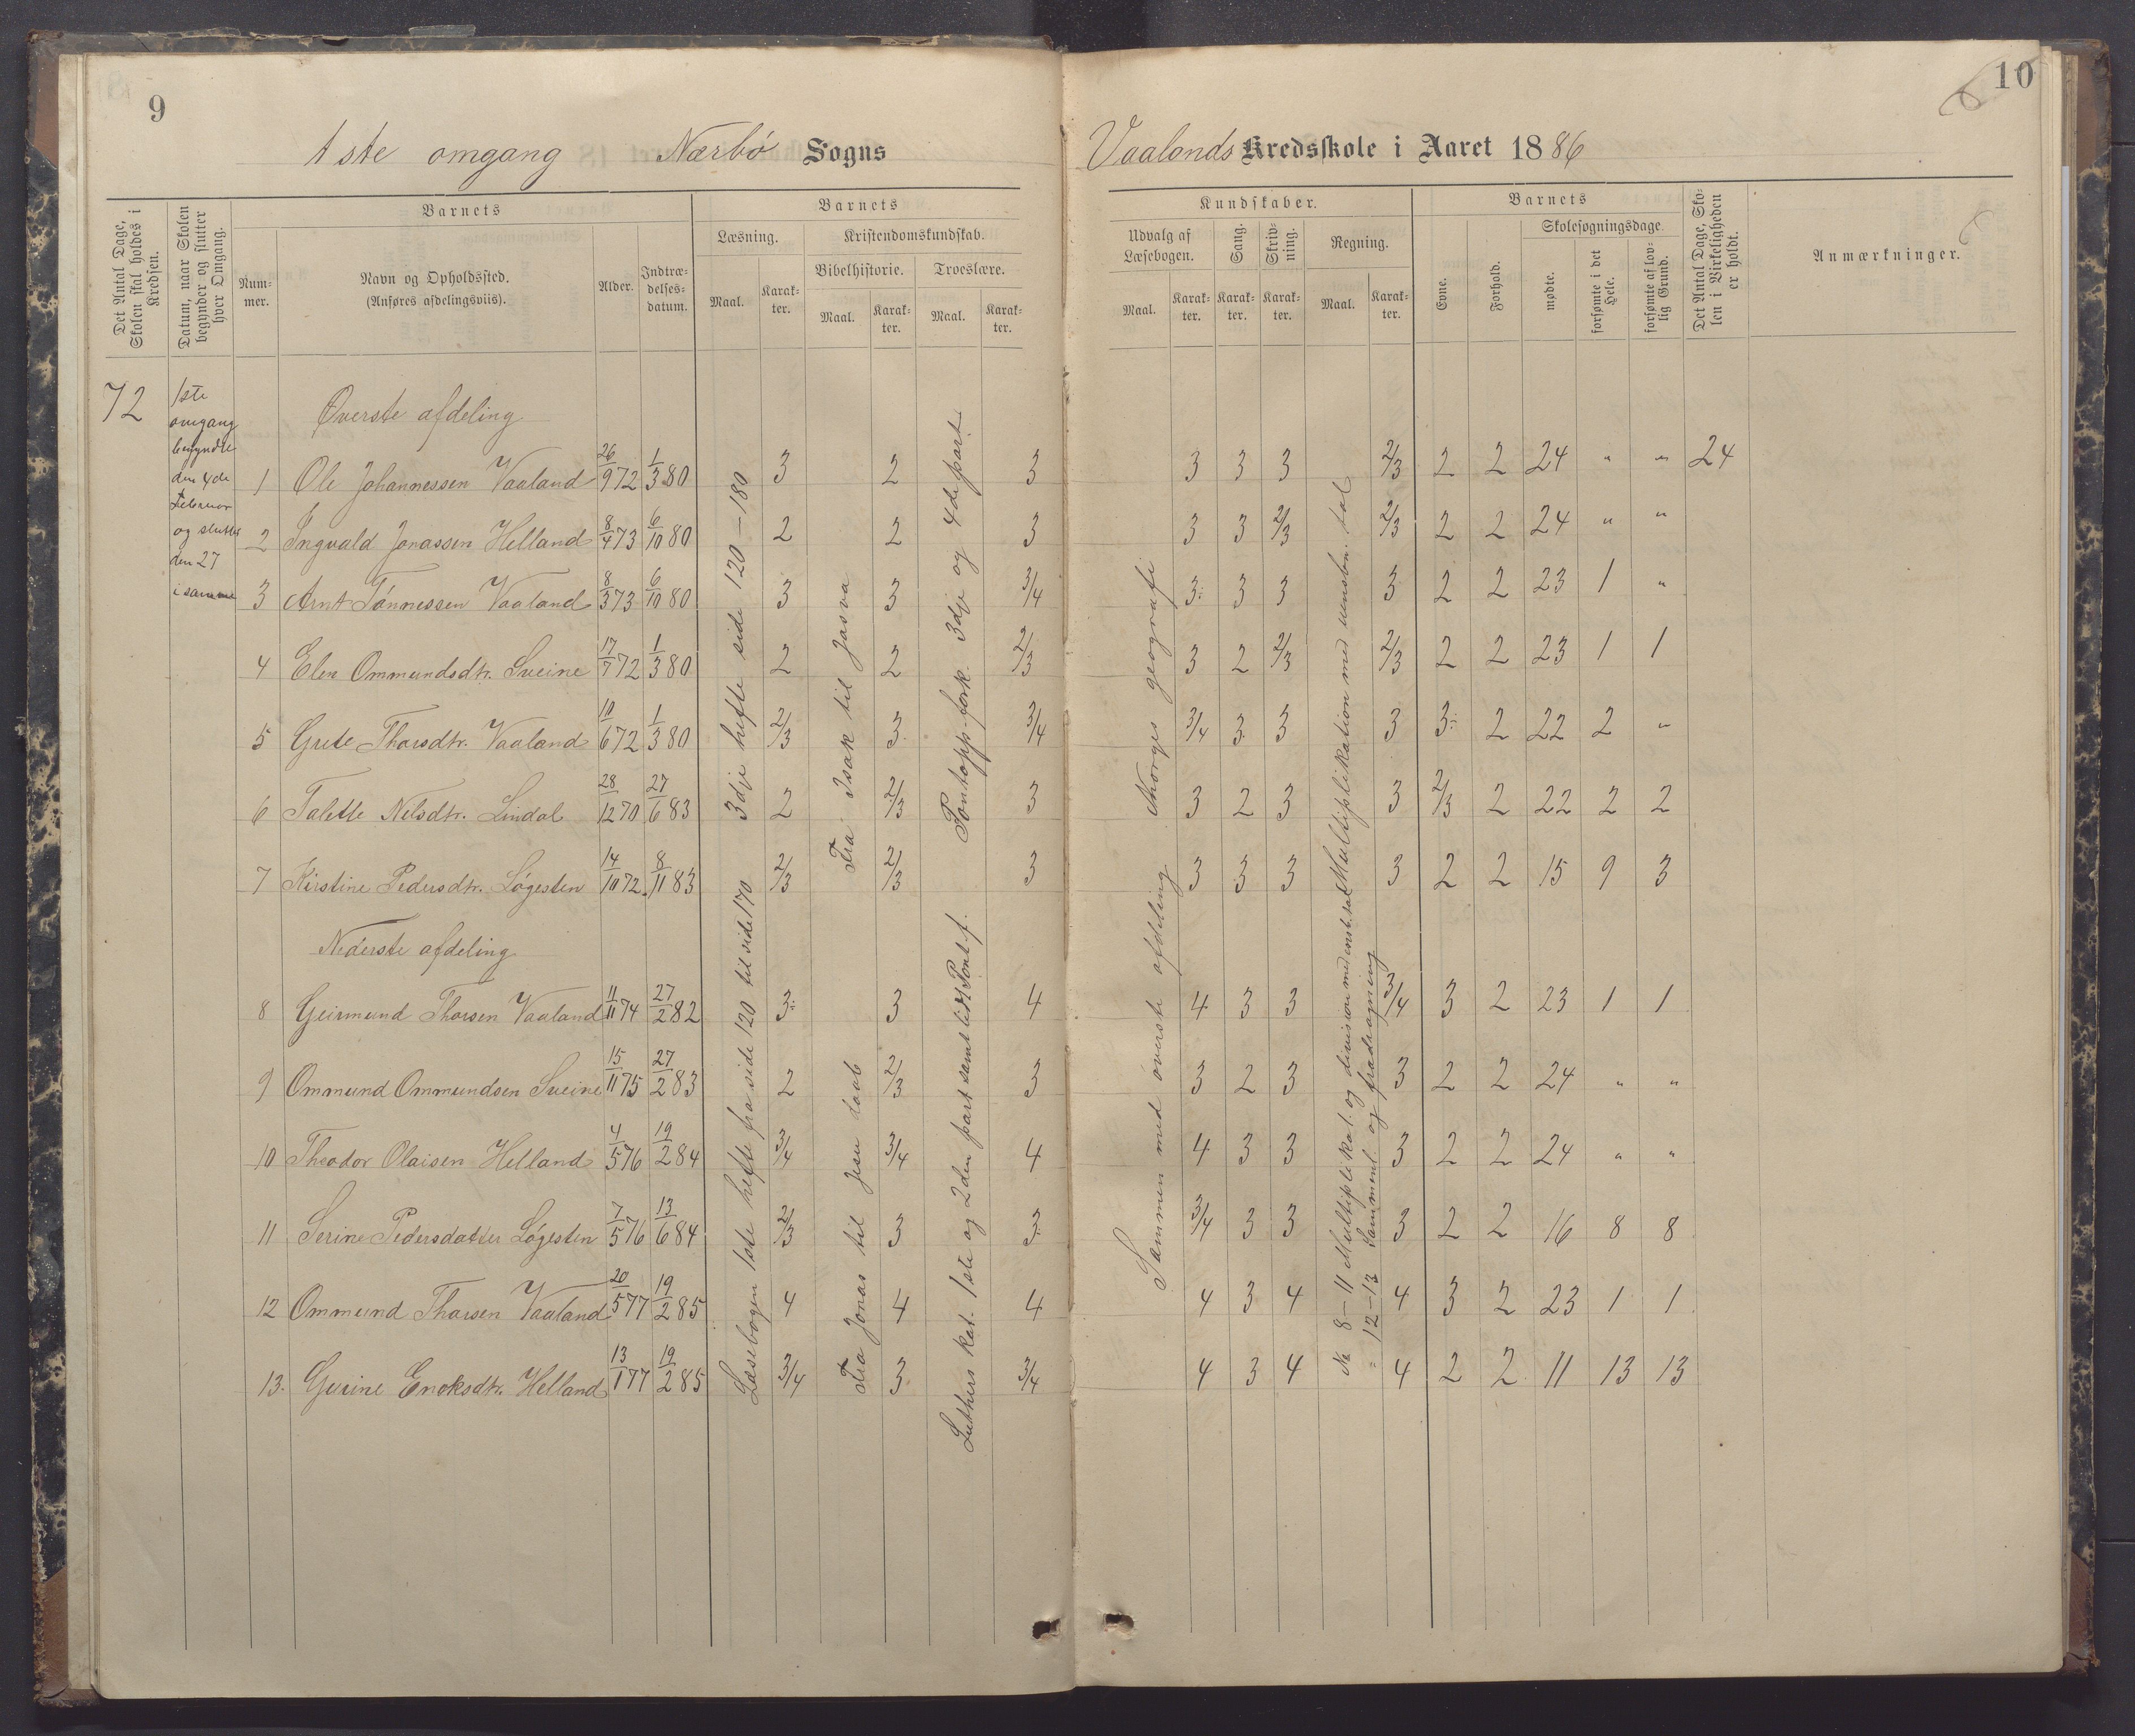 9
10
1ste omgang Nærbø Sogns
Vaalands Kredsskole i Aaret 1886
Det Antal Dage, Skolen skal holdes i Kredsen.
Datum, naar Skolen begynder og slutter hver Omgang.
Barnets
Nummer.
Navn og Opholdssted.
(Anføres afdelingsviis).
Alder.
Indtrædelsesdatum.
Barnets
Læsning.
Maal.
Karakter.
Kristendomskundskab.
Bibelhistorie.
Maal.
Karakter.
Troeslære.
Maal.
Karakter.
Kundskaber.
Udvalg af Læsebogen.
Maal.
Karakter.
Sang.
Karakter.
Skrivning.
Karakter.
Regning.
Maal.
Karakter.
Barnets
Evne.
Forhold.
Skolesøgningsdage.
mødte.
forsømte i det Hele.
forsømte af lovlig Grund.
Det Antal Dage, Skolen i Virkeligheden er holdt.
Anmærkninger.
72
1ste
omgang
begyndte
den 4de
Februar
og sluttet
den 27
i samme
Øverste afdeling
1 Ole Johannessen Vaaland 26/9 72 1/3 80 3 2 3 3 3 3 2/3 2 2 24 " " 24
2 Ingvald Jonassen Helland 8/4 73 6/10 80 2 2 3 3 3 2/3 2/3 2 2 24 " "
3 Arnt Tønnessen Vaaland 8/3 73 6/10 80 3 3 3/4 3 3 3 3 2 2 23 1 "
4 Elen Ommundsdtr. Sveine 17/7 72 1/3 80 2 2 2/3 3 2 2/3 2/3 2 2 23 1 1
5 Grete Tharsdtr. Vaaland 10/6 72 1/3 80 2/3 3 3/4 3/4 3 3 3 3 2 22 2 "
6 Talette Nelsdtr. Lindal 28/12 70 27/6 83 2 2/3 3 3 2 3 3 2/3 2 22 2 2
7 Kirstine Pedersdtr. Løgesten 14/10 72 8/11 83 2/3 2/3 3 3 3 3 3 2 2 15 9 3
3dje hefte side 120 – 180
Fra Isak til Josva
Pontopp. fork. 3dje og 4de part
Norges geografi
Multiplikation med uensbn. tal
Nederste afdeling
8 Geirmund Tharsen Vaaland 11/11 74 27/2 82 3 3 4 4 3 3 3/4 3 2 23 1 1
9 Ommund Ommundsen Sveine 15/11 75 27/2 83 2 2/3 3 3 2 3 3 2 2 24 " "
10 Theodor Olaisen Helland 4/5 76 19/2 84 3/4 3/4 4 4 3 3 3 2 2 24 " "
11 Serine Pedersdatter Løgesten 7/5 76 13/6 84 2/3 3 3 3/4 3 3 3 2 2 16 8 8
12 Ommund Tharsen Vaaland 20/5 77 19/2 85 4 4 4 4 3 4 4 3 2 23 1 1
13. Gurine Enoksdtr. Helland 13/1 77 19/2 85 3/4 3 3/4 4 3 4 4 2 2 11 13 13
Læsebogen 1ste hefte fra side 120 til side 170
Fra Jonas til Jesu daab
Luthers kat. 1ste og 2den part samt lidt Pont. f.
Sammen med øverste afdeling
No 8–11 Multiplikat. og division med ensb. tal
" 12–13 Sammenl. og fradragning